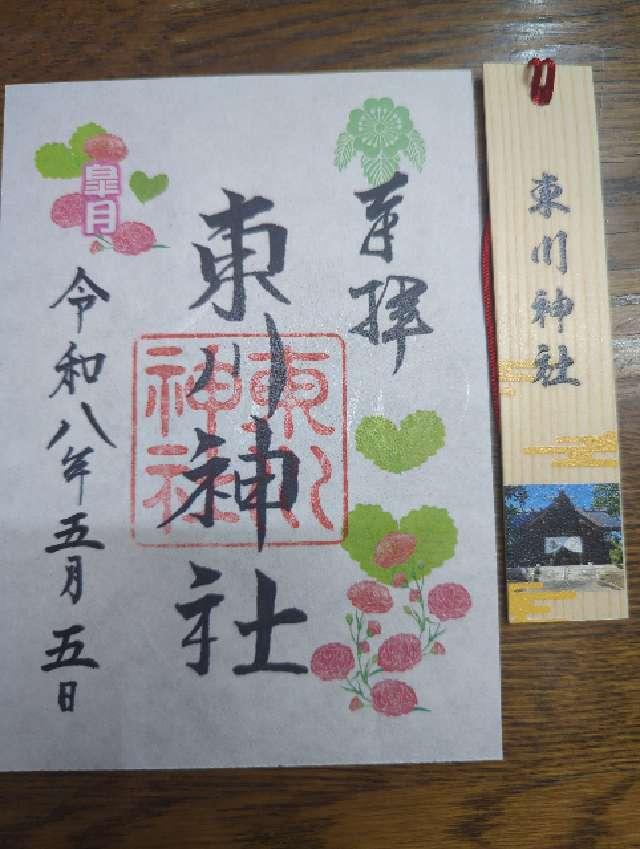 奉拝
東川神社
東川神社
皐月
令和八年五月五日
東川神社